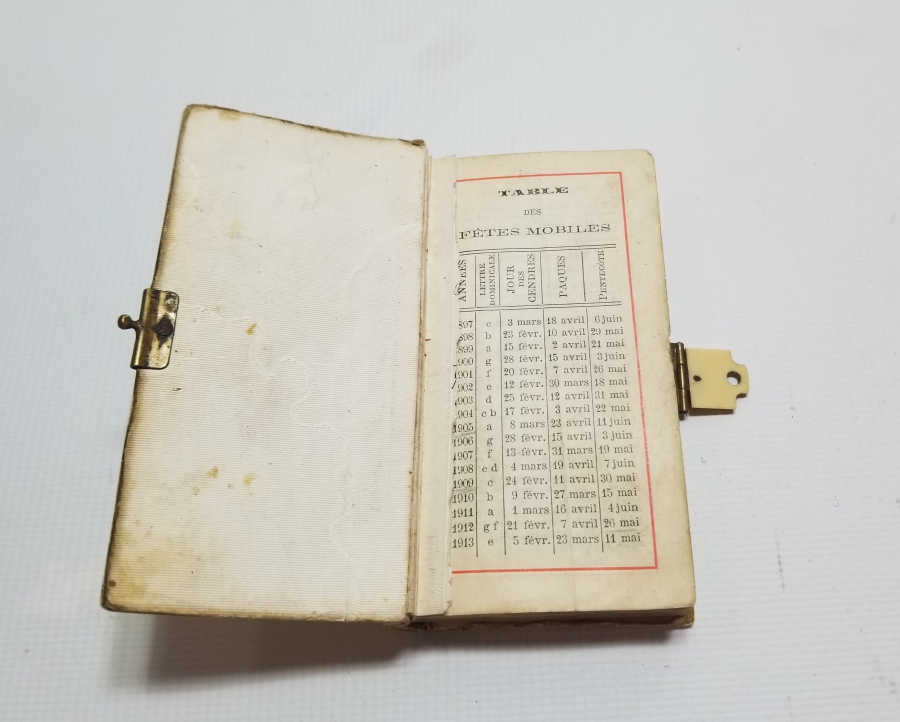 TABLE
DES
FÊTES MOBILES
ANNÉES LETTRE DOMINICALE JOUR DES CENDRES PAQUES PENTECÔTE
897 c 3 mars 18 avril 6 juin
898 b 23 févr. 10 avril 29 mai
899 a 15 févr. 2 avril 21 mai
900 g 28 févr. 15 avril 3 juin
901 f 20 févr. 7 avril 26 mai
902 e 12 févr. 30 mars 18 mai
903 d 25 févr. 12 avril 31 mai
904 c b 17 févr. 3 avril 22 mai
1905 a 8 mars 23 avril 11 juin
1906 g 28 févr. 15 avril 3 juin
1907 f 13 févr. 31 mars 19 mai
1908 e d 4 mars 19 avril 7 juin
1909 c 24 févr. 11 avril 30 mai
1910 b 9 févr. 27 mars 15 mai
1911 a 1 mars 16 avril 4 juin
1912 g f 21 févr. 7 avril 26 mai
1913 e 5 févr. 23 mars 11 mai